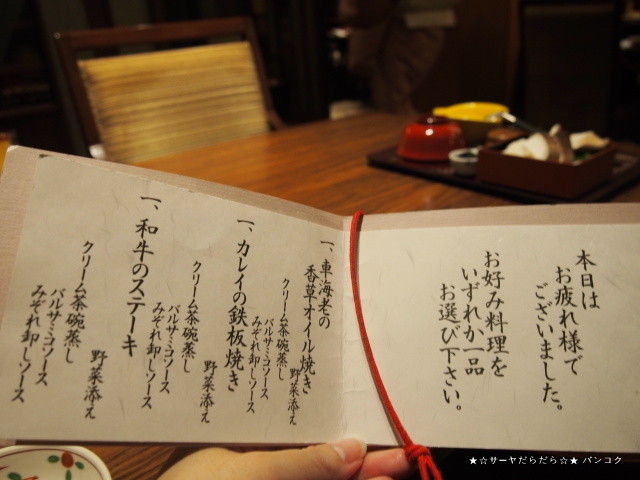 本日は
お疲れ様で
ございました。
お好み料理を
いずれか一品
お選び下さい。
一、車海老の
香草オイル焼き
野菜添え
クリーム茶碗蒸し
バルサミコソース
みぞれ卸しソース
一、カレイの鉄板焼き
野菜添え
クリーム茶碗蒸し
バルサミコソース
みぞれ卸しソース
一、和牛のステーキ
野菜添え
クリーム茶碗蒸し
バルサミコソース
みぞれ卸しソース
★☆サーヤだらだら☆★ バンコク